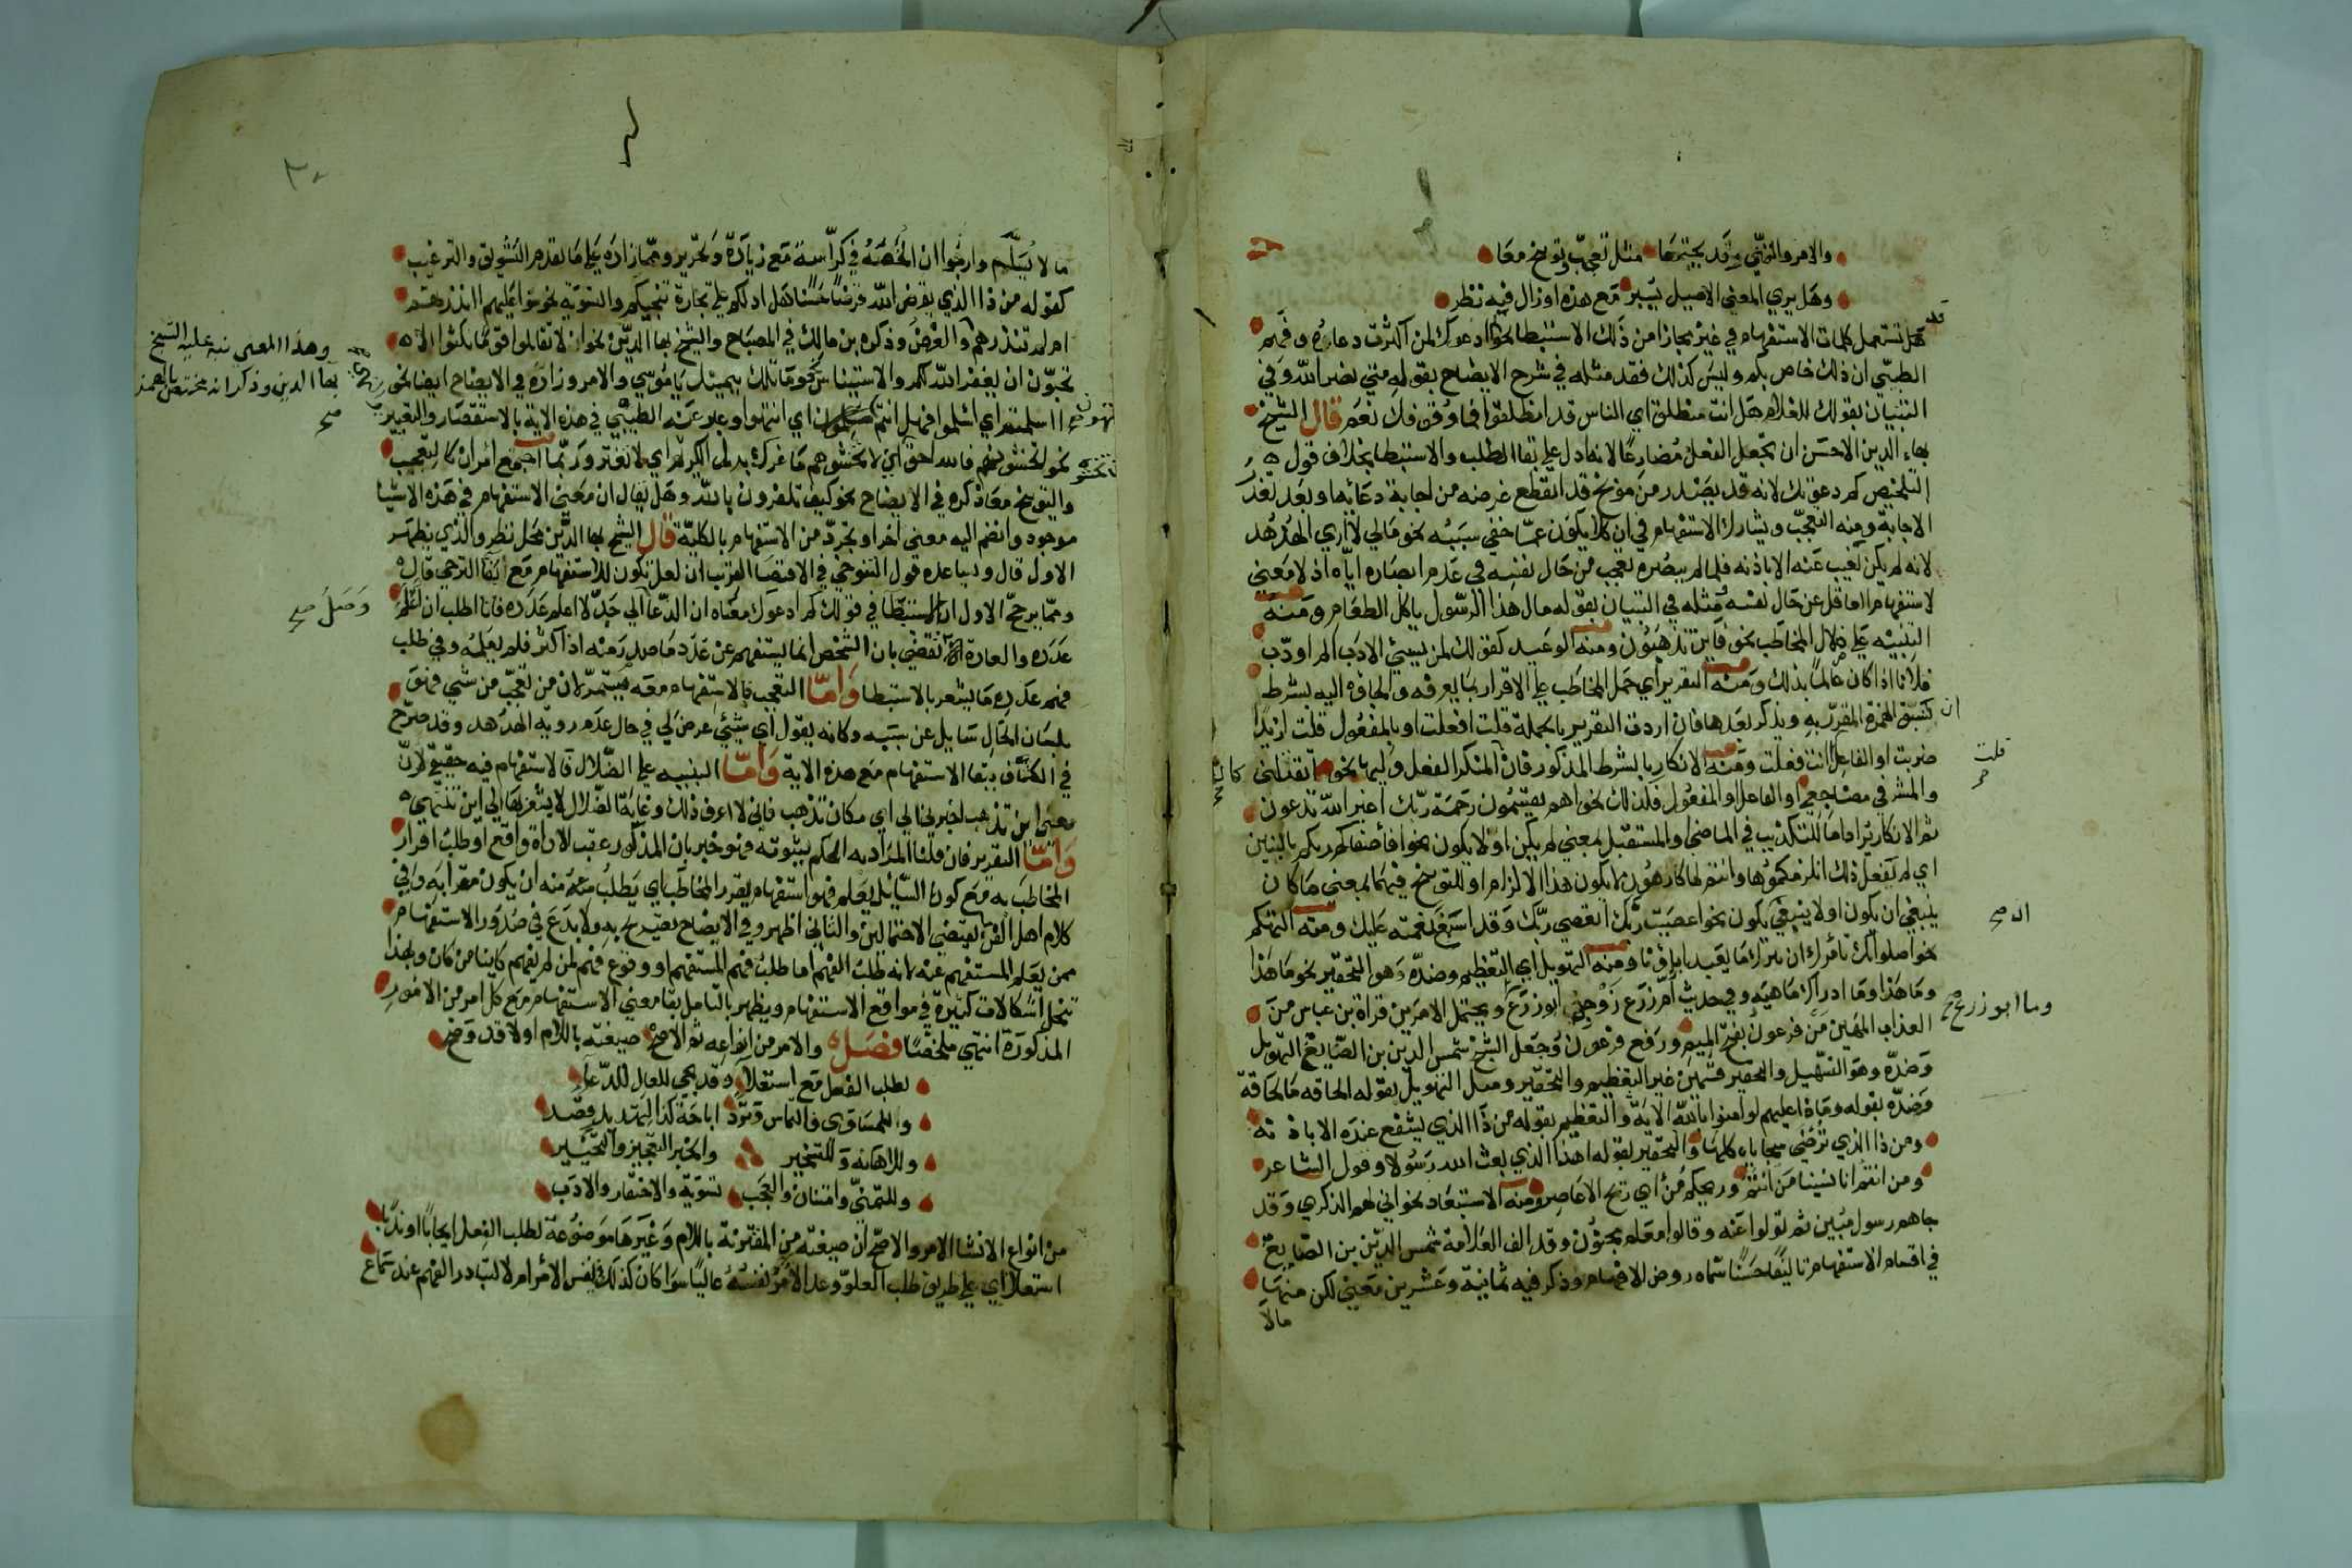 والامر والتمني وقد يجتمعا مثل تعجب وتوبيخ معا
وهل يري المعني الاصيل يسبر مع هذه اوزال فيه نظر
قد تستعمل كلمات الاستفهام في غيره مجازا من ذلك الاستبطا نحو كم ادعوك لمن اكثرت دعاءه وفهم
الطيبي ان ذلك خاص بكم وليس كذلك فقد مثله في شرح الايضاح بقوله متي نصر الله وفي
التبيان بقولك للغلام هل انت منطلق اي الناس قد انطلقوا فما وقوفك نعم قال الشيخ
بهاء الدين الاحسن ان تجعل الفعل مضارعا لانه ادل علي بقا الطلب والاستبطا بخلاف قول
التلخيص كم دعوتك لانه قد يصدر من موبخ قد انقطع غرضه من اجابة دعائه او بعد تعذر
الاجابة ومنه التعجب ويشارك الاستفهام في ان كلا يكون عما خفي سببه نحو مالي لا اري الهدهد
لانه لم يكن يغيب عنه الا باذنه فلما لم يبصره تعجب من حال نفسه في عدم ابصاره اياه اذ لا معني
لاستفهام العاقل عن حال نفسه ومثله في التبيان بقوله مال هذا الرسول ياكل الطعام ومنه
التنبيه علي ضلال المخاطب نحو فاين تذهبون ومنه الوعيد كقولك لمن يسيئ الادب الم اودب
فلانا اذا كان عالما بذلك ومنه التقرير اي حمل المخاطب علي الاقرار بما يعرفه والجاؤه اليه بشرط
ان تسبق الهمزة المقرر به ويذكر بعدها فان اردت التقرير بالجملة قلت افعلت او بالمفعول قلت ازيدا
ضربت او الفاعل قلت اانت فعلت ومنه الانكار بالشرط المذكور فان المنكر الفعل وليها نحو اتقتلني
والمشرفي مضاجعي او الفاعل او المفعول فكذلك نحو اهم يقسمون رحمة ربك اغير الله تدعون
ثم الانكار اما للتكذيب في الماضي او المستقبل بمعني لم يكن او لا يكون نحو افاصفاكم ربكم بالبنين
اي لم يفعل ذلك انلزمكموها وانتم لها كارهون لا يكون هذا الالزام او للتوبيخ فيهما بمعني ما كان
ينبغي ان يكون او لا ينبغي يكون نحو اعصيت ربك اتعصي ربك وقد اسبغ نعمته عليك ومنه التهكم
نحو اصلواتك تامرك ان نترك ما يعبد اباؤنا ومنه التهويل اي التعظيم وضده وهو التحقير نحو ما هذا
وما هذا وما ادراك ما هيه وفي حديث ام زرع زوجي ابو زرع وما ابو زرع ويحتمل الامرين قراة بن عباس من
العذاب المهين من فرعون بفتح الميم ورفع فرعون وجعل الشيخ شمس الدين بن الصايغ التهويل
وضده وهو التسهيل والتحقير قسمين غير التعظيم والتحقير ومثل التهويل بقوله الحاقه ما الحاقة
وضده بقوله وماذا عليهم لو امنوا بالله الاية والتعظيم بقوله من ذا الذي يشفع عنده الا باذنه
ومن ذا الذي ترضي سجاياه كلها والتحقير بقوله اهذا الذي بعث الله رسولا وقول الشاعر
ومن انتم انا نسينا من انتم وريحكم من اي ريح الاعاصر ومنه الاستبعاد نحو اني لهم الذكري وقد
جاهم رسول مبين ثم تولوا عنه وقالوا معلم مجنون وقد الف العلامة شمس الدين بن الصايغ
في اقسام الاستفهام تاليفا حسنا سماه روض الافهام وذكر فيه ثمانية وعشرين معني لكن منها
مالا
ما لا يسلم وارجوا ان الخصه في كراسة مع زيادة وتحرير ومما زاده علي ما تقدم التشويق والترغيب
كقوله من ذا الذي يقرض الله قرضا حسنا هل ادلكم علي تجارة تنجيكم والتسوية نحو سوا عليهم اانذرتهم
ام لم تنذرهم والعرض وذكره بن مالك في المصباح والشيخ بها الدين نحو الا تقاتلون قوما نكثوا الا
تحبون ان يغفر الله لكم والاستيناس نحو وما تلك بيمينك يا موسي والامر وزاده في الايضاح ايضا نحو
ااسلمتم اي اسلموا فهل انتم منتهون اي انتهوا وعبر عنه الطيبي في هذه الاية بالاستقصار والتعيير
نحو اتخشونهم فالله احق اي لا تخشوهم ما غرك بربك الكريم اي لا تغتر وربما اجتمع امران كالتعجب
والتوبيخ معا ذكره في الايضاح نحو كيف تكفرون بالله وهل يقال ان معني الاستفهام في هذه الاشيا
موجود وانضم اليه معني اخر او تجرد من الاستفهام بالكلية قال الشيخ بها الدين محل نظر والذي يظهر
الاول قال ويساعده قول التنوخي في الاقصي القريب ان لعل تكون للاستفهام مع بقا الترجي قال
ومما يرجح الاول ان الاستبطا في قولك كم ادعوك معناه ان الدعا الي حد لا اعلم عدده فانا اطلب ان اعلم
عدده والعادة تقضي بان الشخص انما يستفهم عن عدد ما صدر منه اذا كثر فلم يعلمه وفي طلب
فهم عدده ما يشعر بالاستبطا واما التعجب فالاستفهام معه مستمر لان من تعجب من شي فهو
بلسان الحال سايل عن سببه وكانه يقول اي شيئ عرض لي في حال عدم روية الهدهد وقد صرح
في الكشاف ببقا الاستفهام مع هذه الاية واما التنبيه علي الضلال فالاستفهام فيه حقيقي لان
معني اين تذهب اخبرني الي اي مكان تذهب فاني لا اعرف ذلك وغاية الضلال لا يشعر بها الي اين تنتهي
واما التقرير فان قلنا المراد به الحكم بثبوته فهو خبر بان المذكور عقب الاداة واقع او طلب اقرار
المخاطب به مع كون السايل يعلم فهو استفهام يقرر المخاطب اي يطلب منه ان يكون مقرا به وفي
كلام اهل الفن ما يقتضي الاحتمالين والثاني اظهر وفي الايضاح تصريح به ولا بدع في صدور الاستفهام
ممن يعلم المستفهم عنه لانه طلب الفهم اما طلب فهم المستفهم او وقوع فهم لمن لم يفهم كاينا من كان وبهذا
تنحل اشكالات كثيرة في مواقع الاستفهام ويظهر بالتامل بقا معني الاستفهام مع كل امر من الامور
المذكورة انتهي ملخصا فصل والامر من انواعه ثم الاصح صيغته باللام اولا قد وضح
لطلب الفعل مع استعلا وقد يجي للعال للدعاء
والمساوي فالتماس وترد اباحة كذا لتهديد وضد
وللاهانه وللتسخير والخبر التعجيز والتخيير
وللتمني وامتنان والعجب تسوية والاحتقار والادب
من انواع الانشا الامر والاصح ان صيغته من المقترنة باللام وغيرها موضوعة لطلب الفعل ايجابا او ندبا
استعلا اي علي طريق طلب العلو وعد الآمر نفسه عاليا سوا كان كذلك في نفس الامر ام لا لتبادر الفهم عند سماع
وهذا المعني نبه عليه الشيخ
بها الدين وذكر انه مختص بالهمزة
صح